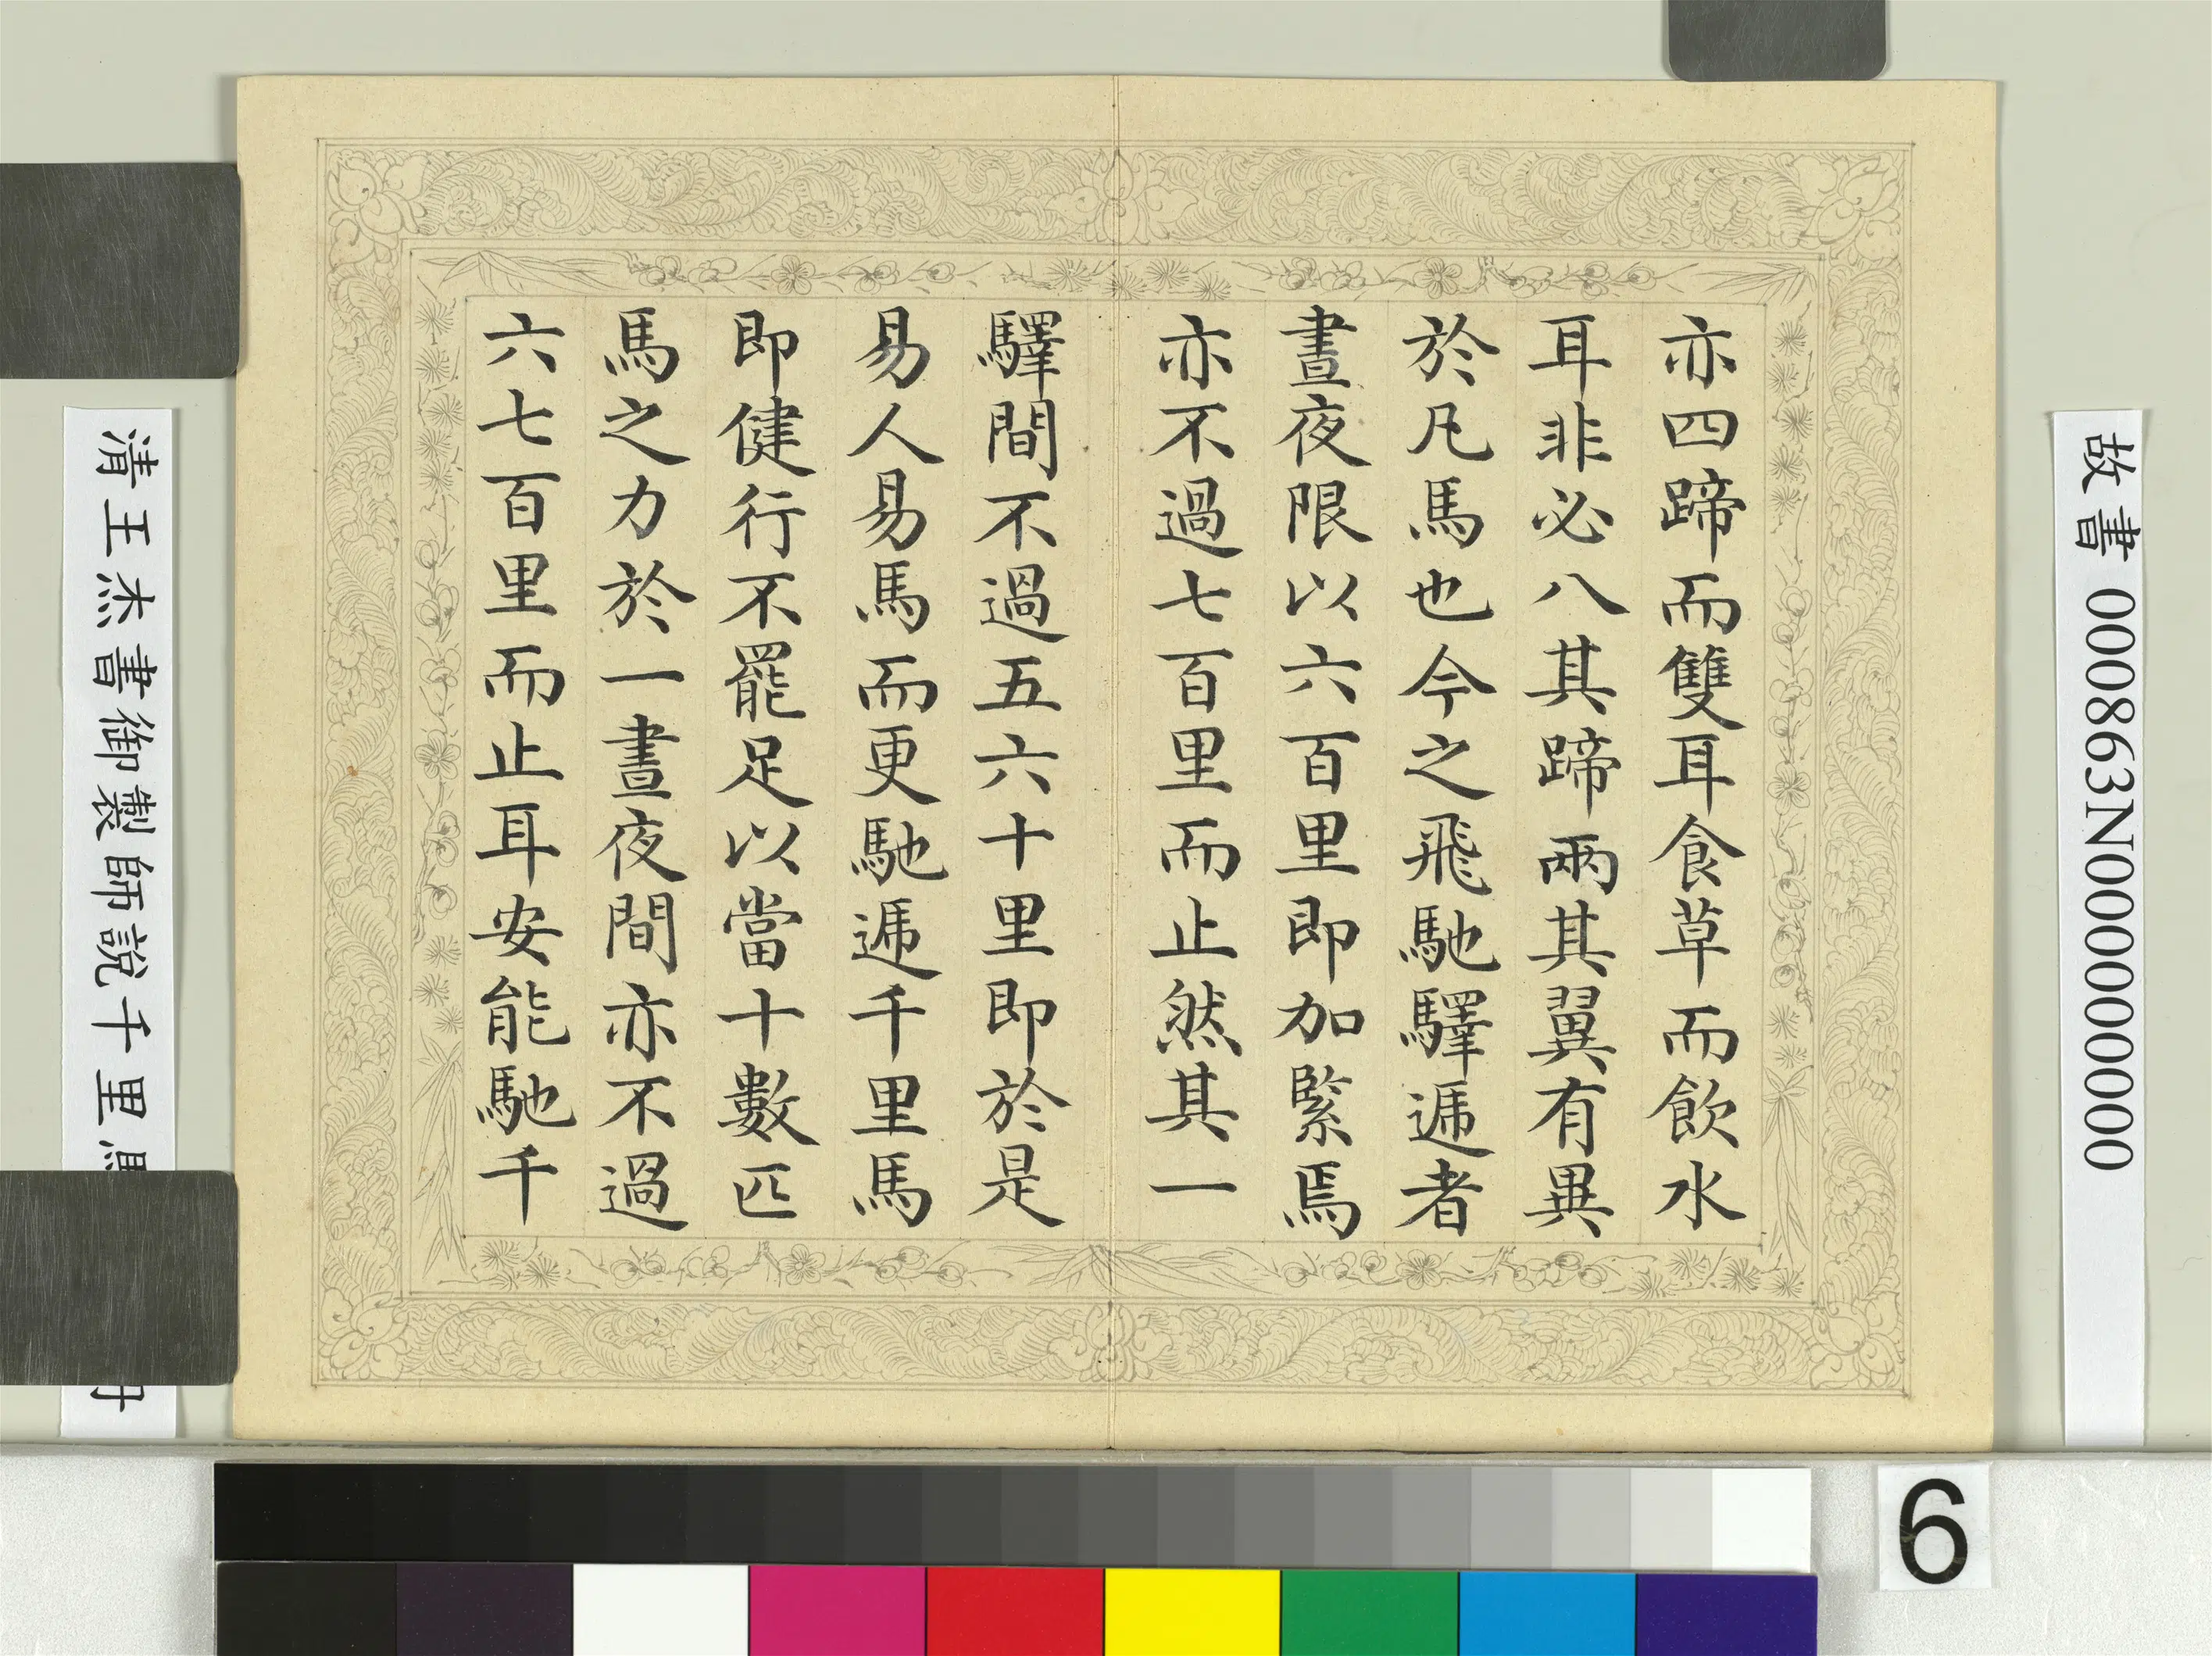 亦四蹄而雙耳食草而飲水
耳非必八其蹄兩其翼有異
於凡馬也今之飛馳驛遞者
晝夜限以六百里即加緊焉
亦不過七百里而止然其一
驛間不過五六十里即於是
易人易馬而更馳遞千里馬
即健行不罷足以當十數匹
馬之力於一晝夜間亦不過
六七百里而止耳安能馳千
故書 000863N000000000
清王杰書御製師說千里馬
冊
6